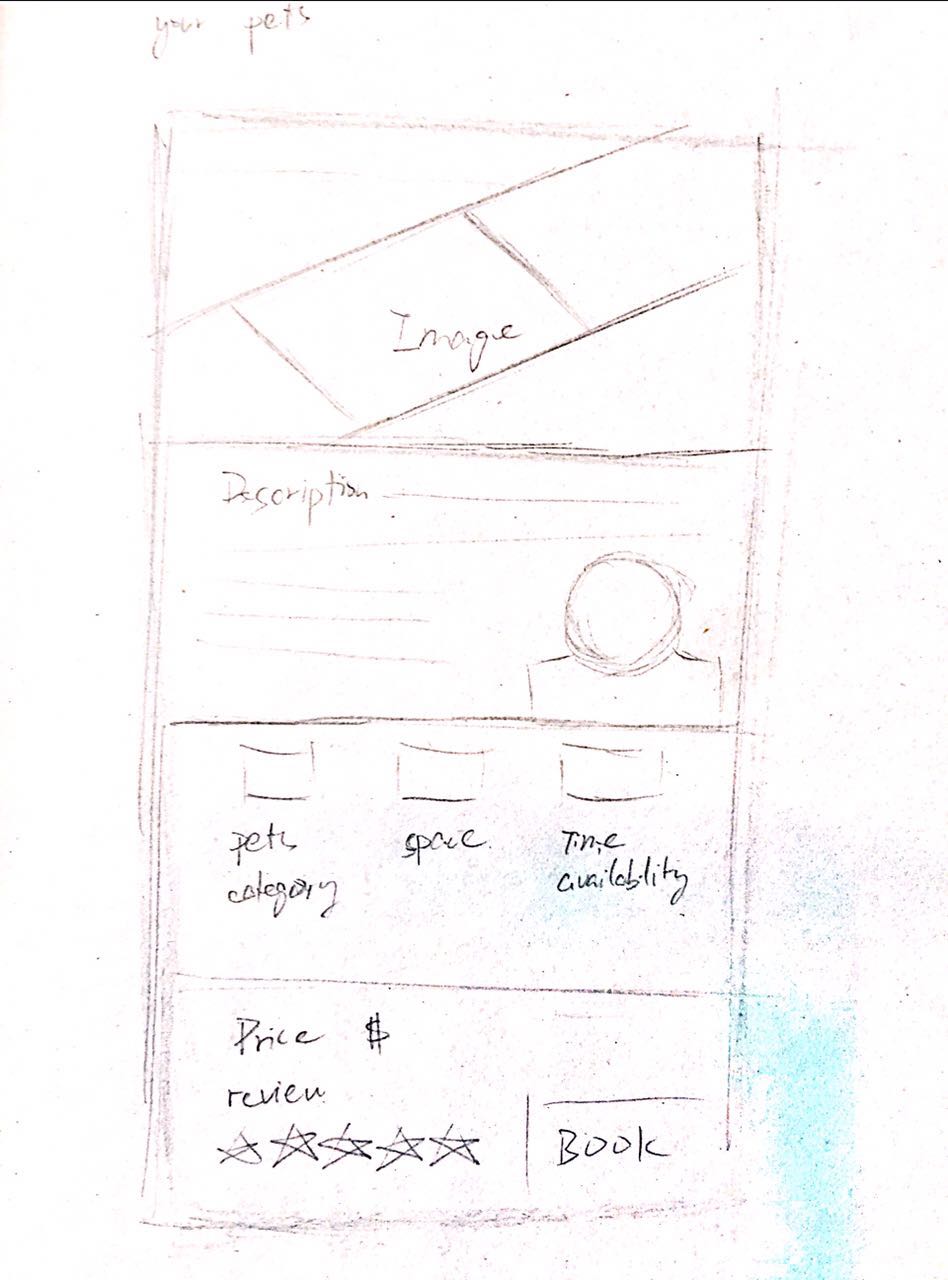 your pets
Image
Description
pets
category
space
Time
availability
Price $
review
BOOK